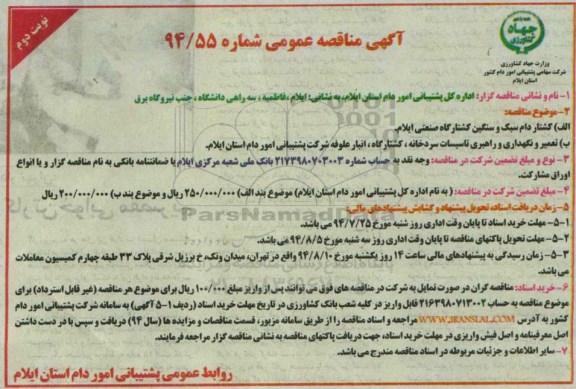 نوبت دوم
آگهی مناقصه عمومی شماره ۹۴/۵۵
جهاد کشاورزی
وزارت جهاد کشاورزی
شرکت سهامی پشتیبانی امور دام کشور
استان ایلام
۱- نام و نشانی مناقصه گزار: اداره کل پشتیبانی امور دام استان ایلام، به نشانی: ایلام ،فاطمیه ، سه راهی دانشگاه ، جنب نیروگاه برق
۲- موضوع مناقصه:
الف) کشتار دام سبک و سنگین کشتارگاه صنعتی ایلام.
ب) تعمیر و نگهداری و راهبری تاسیسات سردخانه ، کشتارگاه ، انبار علوفه شرکت پشتیبانی امور دام استان ایلام.
۳- نوع و مبلغ تضمین شرکت در مناقصه: وجه نقد به حساب شماره ۲۱۷۳۹۸۰۷۰۳۰۰۳ بانک ملی شعبه مرکزی ایلام یا ضمانتنامه بانکی به نام مناقصه گزار و یا انواع
اوراق مشارکت.
۴- مبلغ تضمین شرکت در مناقصه: ( به نام اداره کل پشتیبانی امور دام استان ایلام) موضوع بند الف) ۲۵۰/۰۰۰/۰۰۰ ریال و موضوع بند ب) ۲۰۰/۰۰۰/۰۰۰ ریال
۵- زمان دریافت اسناد، تحویل پیشنهاد و گشایش پیشنهادهای مالی:
۵-۱- مهلت خرید اسناد تا پایان وقت اداری روز شنبه مورخ ۹۴/۷/۲۵ می باشد.
۵-۲- مهلت تحویل پاکتهای مناقصه تا پایان وقت اداری روز سه شنبه مورخ ۹۴/۸/۵ می باشد.
۵-۳- زمان رسیدگی به پیشنهادهای مالی ساعت ۱۴ روز یکشنبه مورخ ۹۴/۸/۱۰ واقع در تهران، میدان ونک، خ برزیل شرقی پلاک ۳۳ طبقه چهارم کمیسیون معاملات
می باشد.
۶- خرید اسناد: مناقصه گران در صورت تمایل به شرکت در مناقصه های فوق می توانند پس از واریز مبلغ ۱۰۰/۰۰۰ ریال برای موضوع هر مناقصه (غیر قابل استرداد) برای
موضوع مناقصه به حساب ۲۱۶۳۹۸۰۷۱۳۰۰۲ قابل واریز در کلیه شعب بانک کشاورزی در تاریخ مهلت خرید اسناد (ردیف ۵-۱ آگهی) به سامانه شرکت پشتیبانی امور دام
کشور به آدرس WWW.IRANSLAL.COM مراجعه و اسناد مناقصه را از طریق سامانه مزبور، قسمت مناقصات و مزایده ها (سال ۹۴) دریافت و سپس با در دست داشتن
اصل معرفینامه و اصل فیش واریزی در مهلت خرید اسناد، جهت دریافت پاکتهای مناقصه به نشانی مناقصه گزار مراجعه فرمایند.
۷- سایر اطلاعات و جزئیات مربوطه در اسناد مناقصه مندرج می باشد.
روابط عمومی پشتیبانی امور دام استان ایلام
ParsNamadData